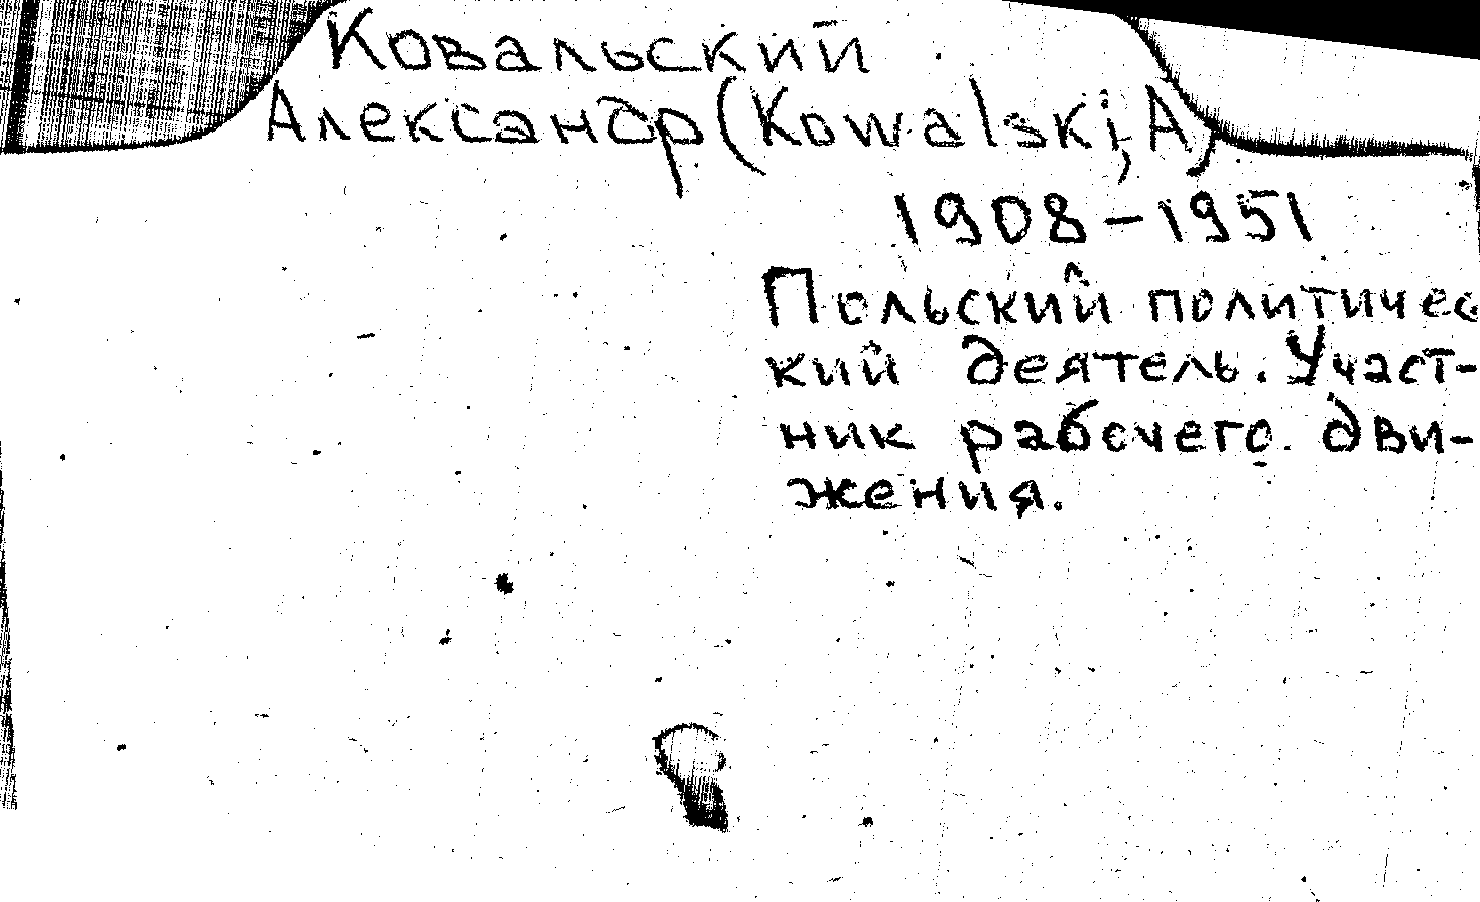 Ковальский
Александр (Kowalski, A)
1908-1951
Польский политичес
кий деятель. Участ-
ник рабочего дви-
жения.